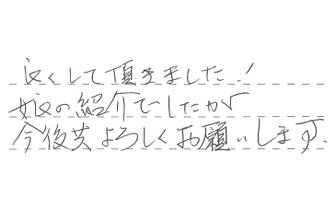 良くして頂きました!
娘の紹介でしたが
今後共よろしくお願いします.